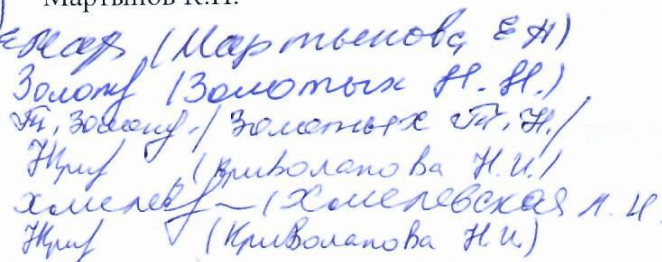 Мартынов К.И.
(Мартынова Е Н)
Золоту (Золотых Н. Н.)
Т. Золоту / Золотых Т. Н. /
Крив (Криволапова Н. И.)
Хмелев (Хмелевская Л. И.
Крив (Криволапова Н. И.)